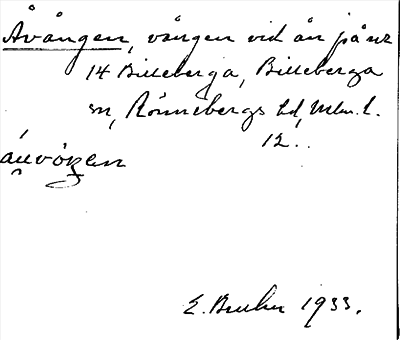 Åvången, vången vid ån på nr
14 Billeberga, Billeberga
sn, Rönnebergs hd, Mlm. l.
12.
E. Bruhn 1933.